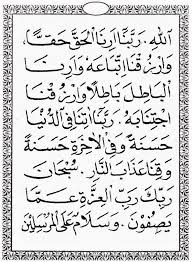 اَللّٰهُ. رَبَّنَا أَرِنَا الْحَقَّ حَقًّا،
وَارْزُقْنَا اتِّبَاعَهُ وَأَرِنَا
الْبَاطِلَ بَاطِلًا وَارْزُقْنَا
اجْتِنَابَهُ. رَبَّنَا آتِنَا فِي الدُّنْيَا
حَسَنَةً وَفِي الْآخِرَةِ حَسَنَةً
وَقِنَا عَذَابَ النَّارِ. سُبْحَانَ
رَبِّكَ رَبِّ الْعِزَّةِ عَمَّا
يَصِفُونَ. وَسَلَامٌ عَلَى الْمُرْسَلِينَ